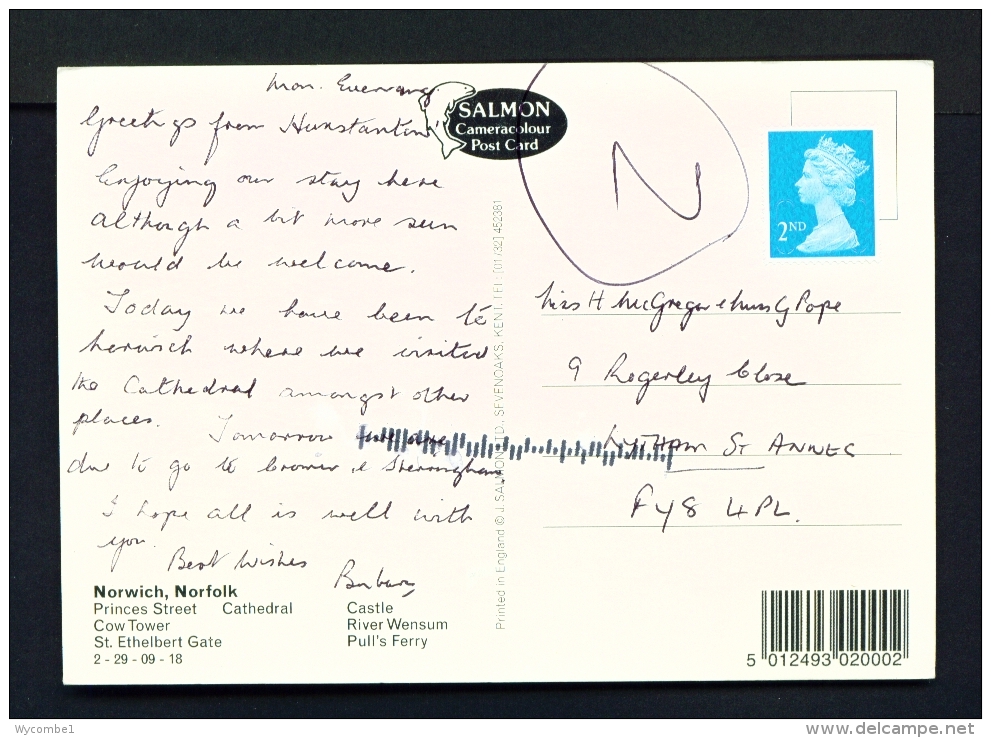 Mon. Evening
Greetings from Hunstanton
Enjoying our stay here
although a bit more sun
would be welcome.
Today we have been to
Norwich where we visited
the Cathedral amongst other
places. Tomorrow we are
due to go to Cromer & Sherringham
I hope all is well with
you.
Best Wishes
Barbara
SALMON
Cameracolour
Post Card
N
2ND
Miss H McGregor & Mrs G Pope
9 Rogerley Close
LYTHAM ST ANNES
FY8 4PL.
Printed in England © J. SALMON LTD., SEVENOAKS, KENT. TEL: [01732] 452381
Norwich, Norfolk
Princes Street Cathedral Castle
Cow Tower River Wensum
St. Ethelbert Gate Pull's Ferry
2 - 29 - 09 - 18
5 012493 020002
Wycombe1
www.delcampe.net